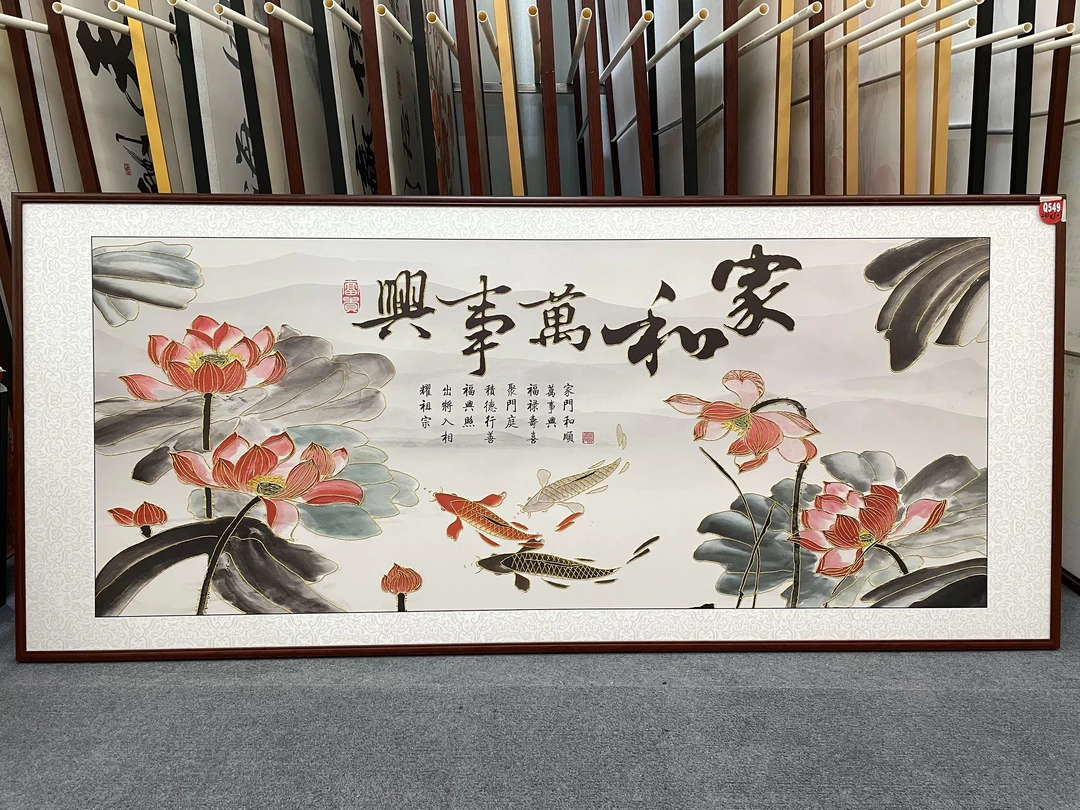 家和萬事興
富貴
家門和順
萬事興
福禄壽喜
聚門庭
積德行善
福興照
出將入相
耀祖宗
Q549